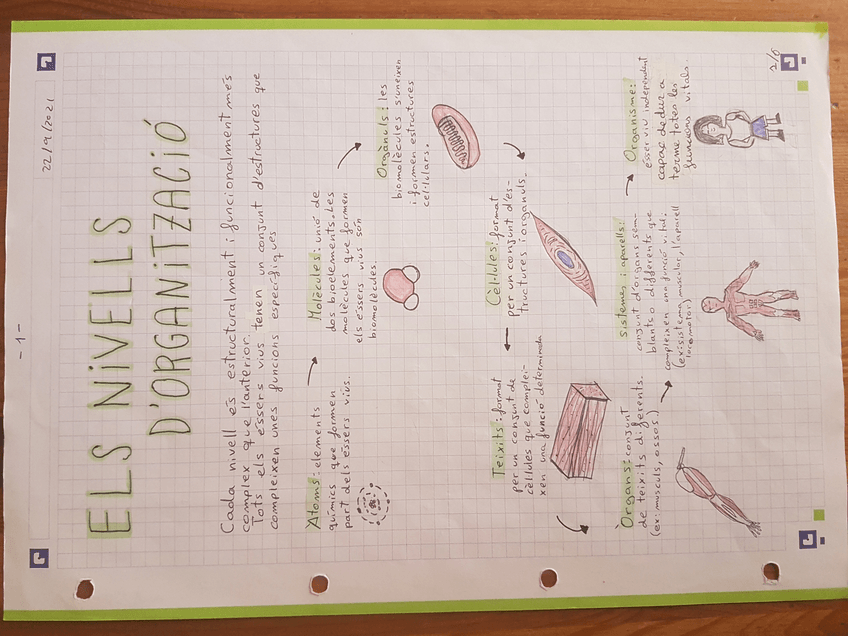 -1-
22/9/2021
ELS NiVELLS
D'ORGANiTZACiÓ
Cada nivell és estructuralment i funcionalment més
complex que l'anterior.
Tots els éssers vius tenen un conjunt d'estructures que
compleixen unes funcions específiques
Àtoms: elements
químics que formen
part dels éssers vius.
Molècules: unió de
dos bioelements. Les
molècules que formen
els éssers vius són
biomolècules.
Orgànuls: les
biomolècules s'uneixen
i formen estructures
cel·lulars.
Cèl·lules: format
per un conjunt d'es-
tructures i orgànuls.
Teixits: format
per un conjunt de
cèl·lules que complei-
xen una funció determinada
Òrgans: conjunt
de teixits diferents.
(ex: musculs, ossos.)
Sistemes i aparells:
conjunt d'òrgans sem-
blants o diferents que
compleixen una funció vital.
(ex: sistema muscular, l'aparell
locomotor)
Organisme:
ésser viu independent
capaç de dur a
terme totes les
funcions vitals.